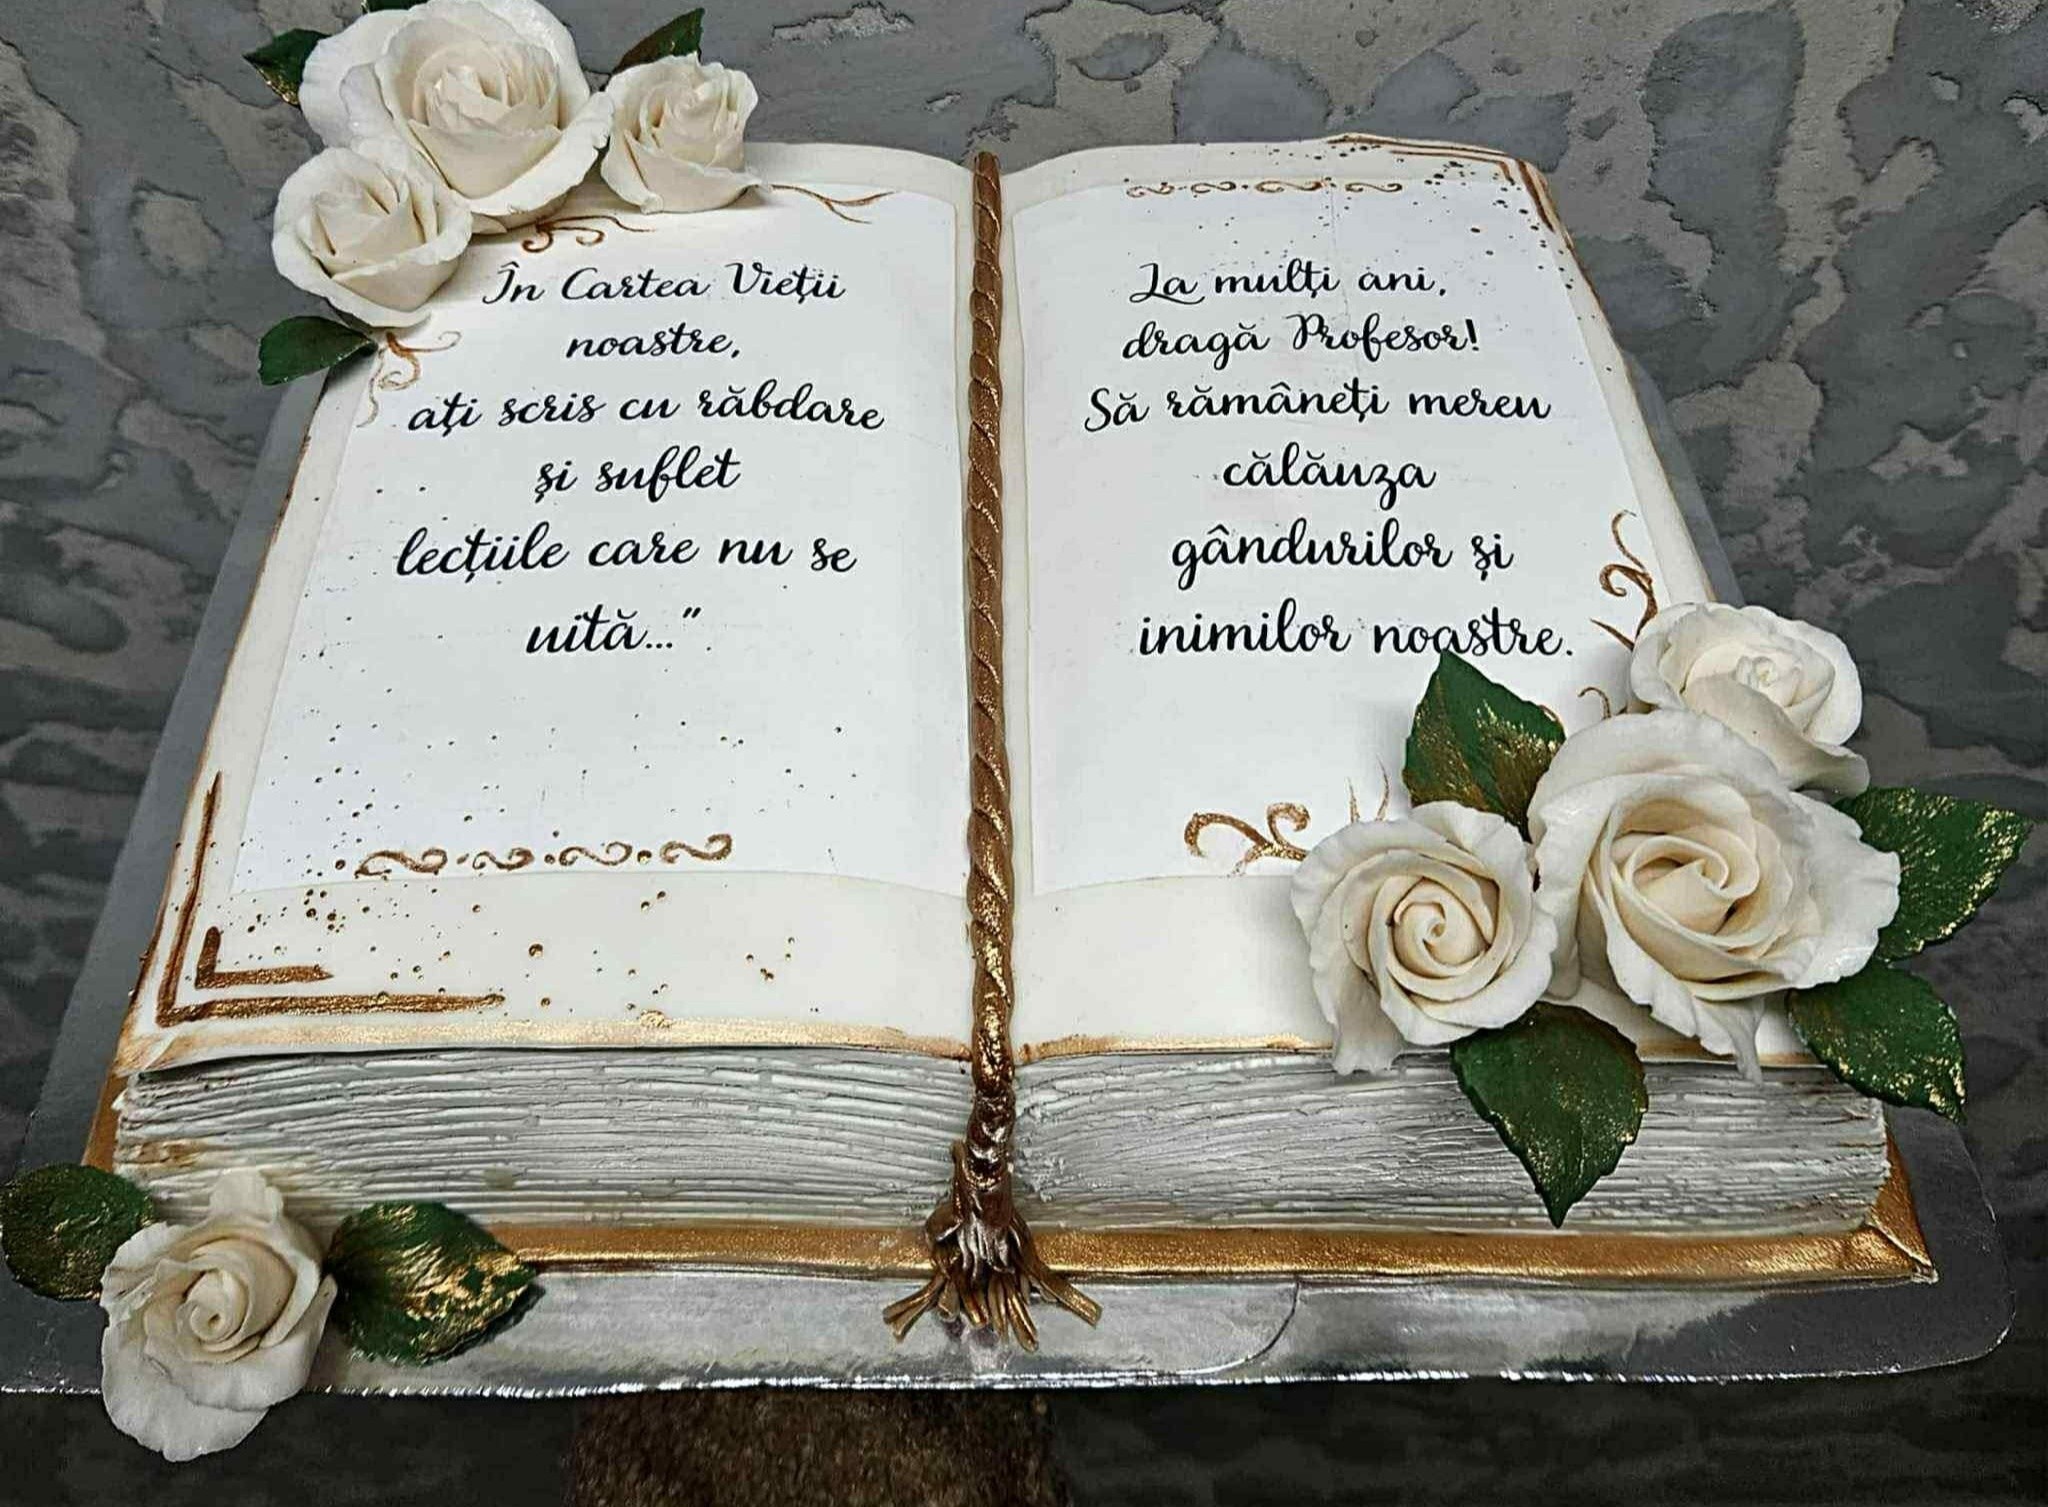 În Cartea Vieții
noastre,
ați scris cu răbdare
și suflet
lecțiile care nu se
uită..."
La mulți ani,
dragă Profesor!
Să rămâneți mereu
călăuza
gândurilor și
inimilor noastre.